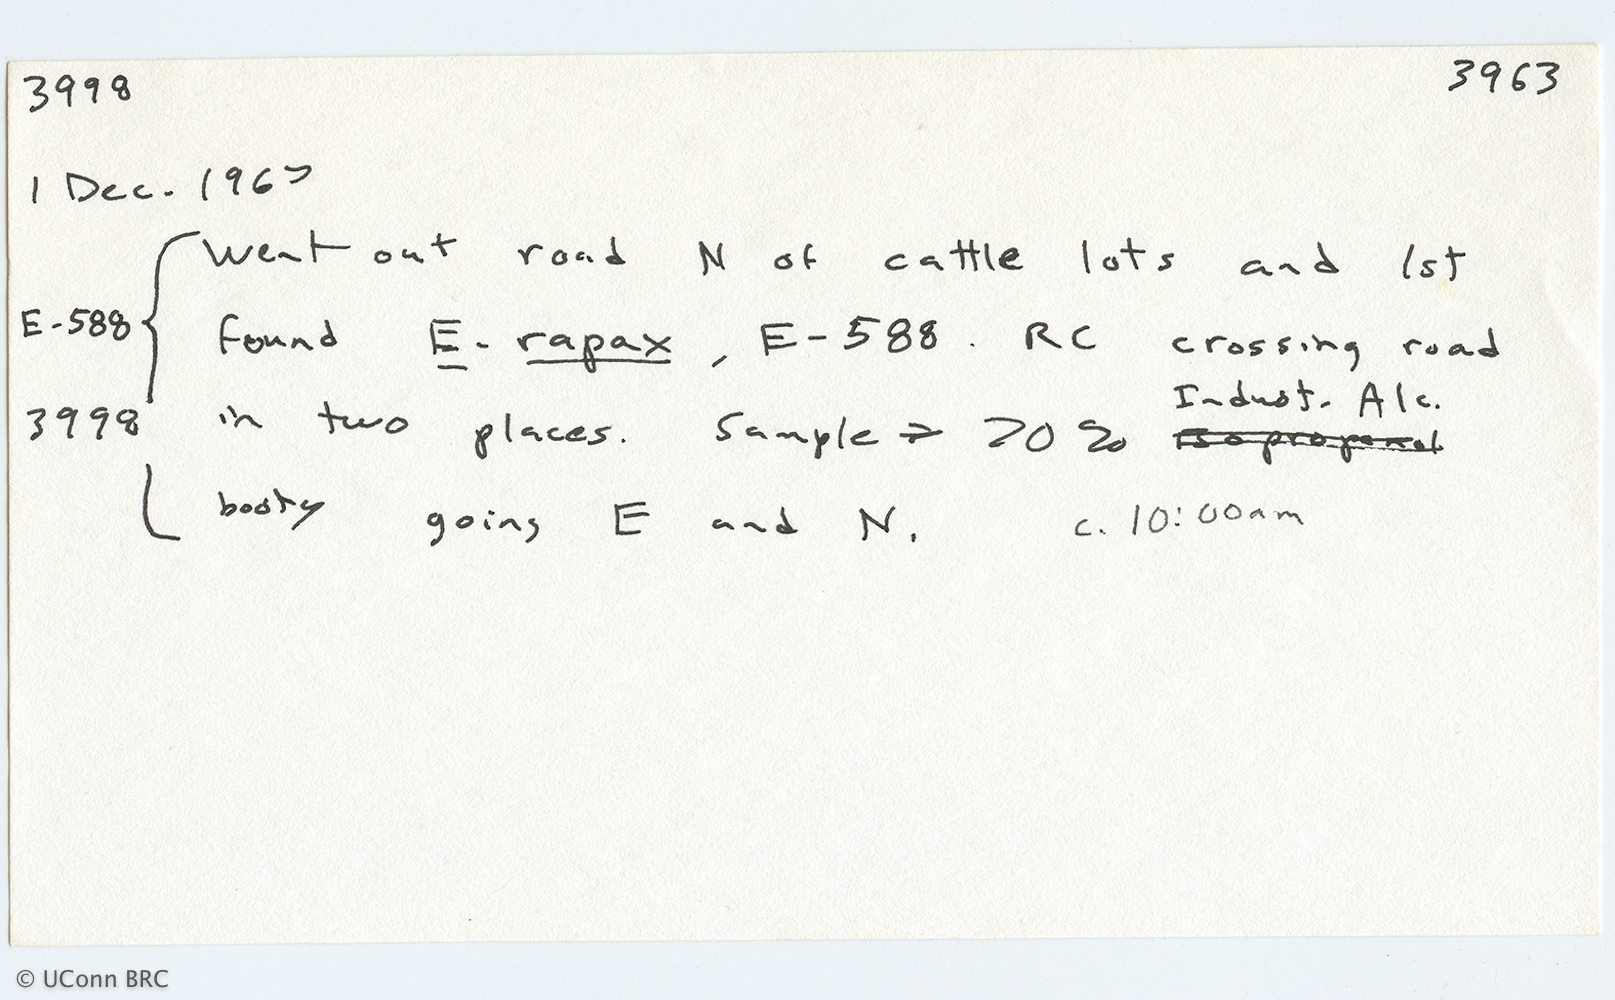 3998 3963
1 Dec. 1967
Went out road N of cattle lots and 1st
E-588 found E. rapax, E-588. RC crossing road
Indust. Alc.
3998 in two places. Sample → 70% Isopropanol
booty going E and N. c. 10:00am
© UConn BRC